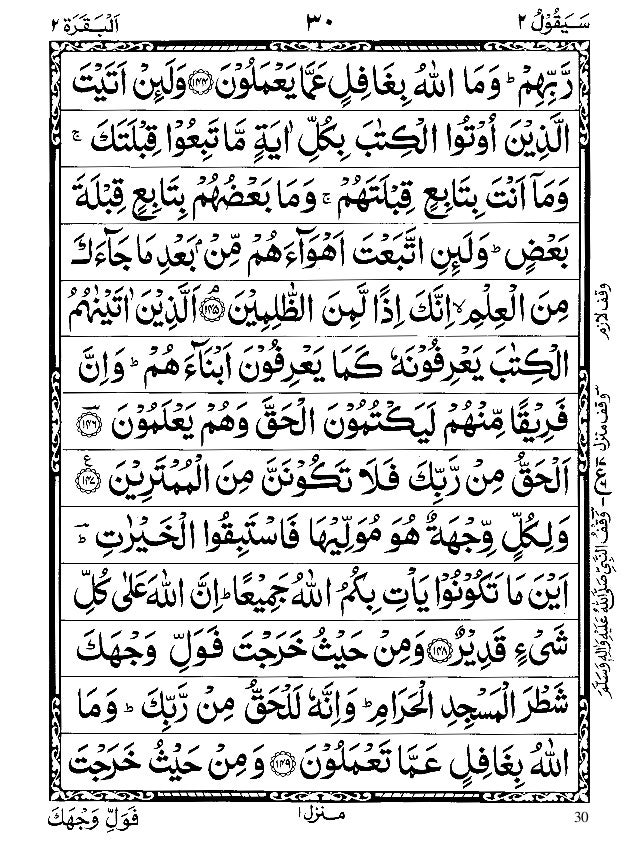 سَيَقُوْلُ ٢ ٣٠ اَلْبَقَرَة ٢
رَّبِّهِمْ ؕ وَمَا اللّٰهُ بِغَافِلٍ عَمَّا يَعْمَلُوْنَ ﴿١٤٤﴾ وَلَئِنْ اَتَيْتَ
الَّذِيْنَ اُوْتُوا الْكِتٰبَ بِكُلِّ اٰيَةٍ مَّا تَبِعُوْا قِبْلَتَكَ ۚ
وَمَاۤ اَنْتَ بِتَابِعٍ قِبْلَتَهُمْ ۚ وَمَا بَعْضُهُمْ بِتَابِعٍ قِبْلَةَ
بَعْضٍ ؕ وَلَئِنِ اتَّبَعْتَ اَهْوَآءَهُمْ مِّنْۢ بَعْدِ مَا جَآءَكَ
مِنَ الْعِلْمِ ۙ اِنَّكَ اِذًا لَّمِنَ الظّٰلِمِيْنَ ﴿١٤٥﴾ اَلَّذِيْنَ اٰتَيْنٰهُمُ
الْكِتٰبَ يَعْرِفُوْنَهٗ كَمَا يَعْرِفُوْنَ اَبْنَآءَهُمْ ؕ وَاِنَّ
فَرِيْقًا مِّنْهُمْ لَيَكْتُمُوْنَ الْحَقَّ وَهُمْ يَعْلَمُوْنَ ﴿١٤٦﴾
اَلْحَقُّ مِنْ رَّبِّكَ فَلَا تَكُوْنَنَّ مِنَ الْمُمْتَرِيْنَ ﴿١٤٧﴾ ع
وَلِكُلٍّ وِّجْهَةٌ هُوَ مُوَلِّيْهَا فَاسْتَبِقُوا الْخَيْرٰتِ ؕ
اَيْنَ مَا تَكُوْنُوْا يَاْتِ بِكُمُ اللّٰهُ جَمِيْعًا ؕ اِنَّ اللّٰهَ عَلٰى كُلِّ
شَىْءٍ قَدِيْرٌ ﴿١٤٨﴾ وَمِنْ حَيْثُ خَرَجْتَ فَوَلِّ وَجْهَكَ
شَطْرَ الْمَسْجِدِ الْحَرَامِ ؕ وَاِنَّهٗ لَلْحَقُّ مِنْ رَّبِّكَ ؕ وَمَا
اللّٰهُ بِغَافِلٍ عَمَّا تَعْمَلُوْنَ ﴿١٤٩﴾ وَمِنْ حَيْثُ خَرَجْتَ
وقف لازم
وقف منزل
وقف النبي صلى الله عليه واله وسلم
فَوَلِّ وَجْهَكَ منزل ١ 30